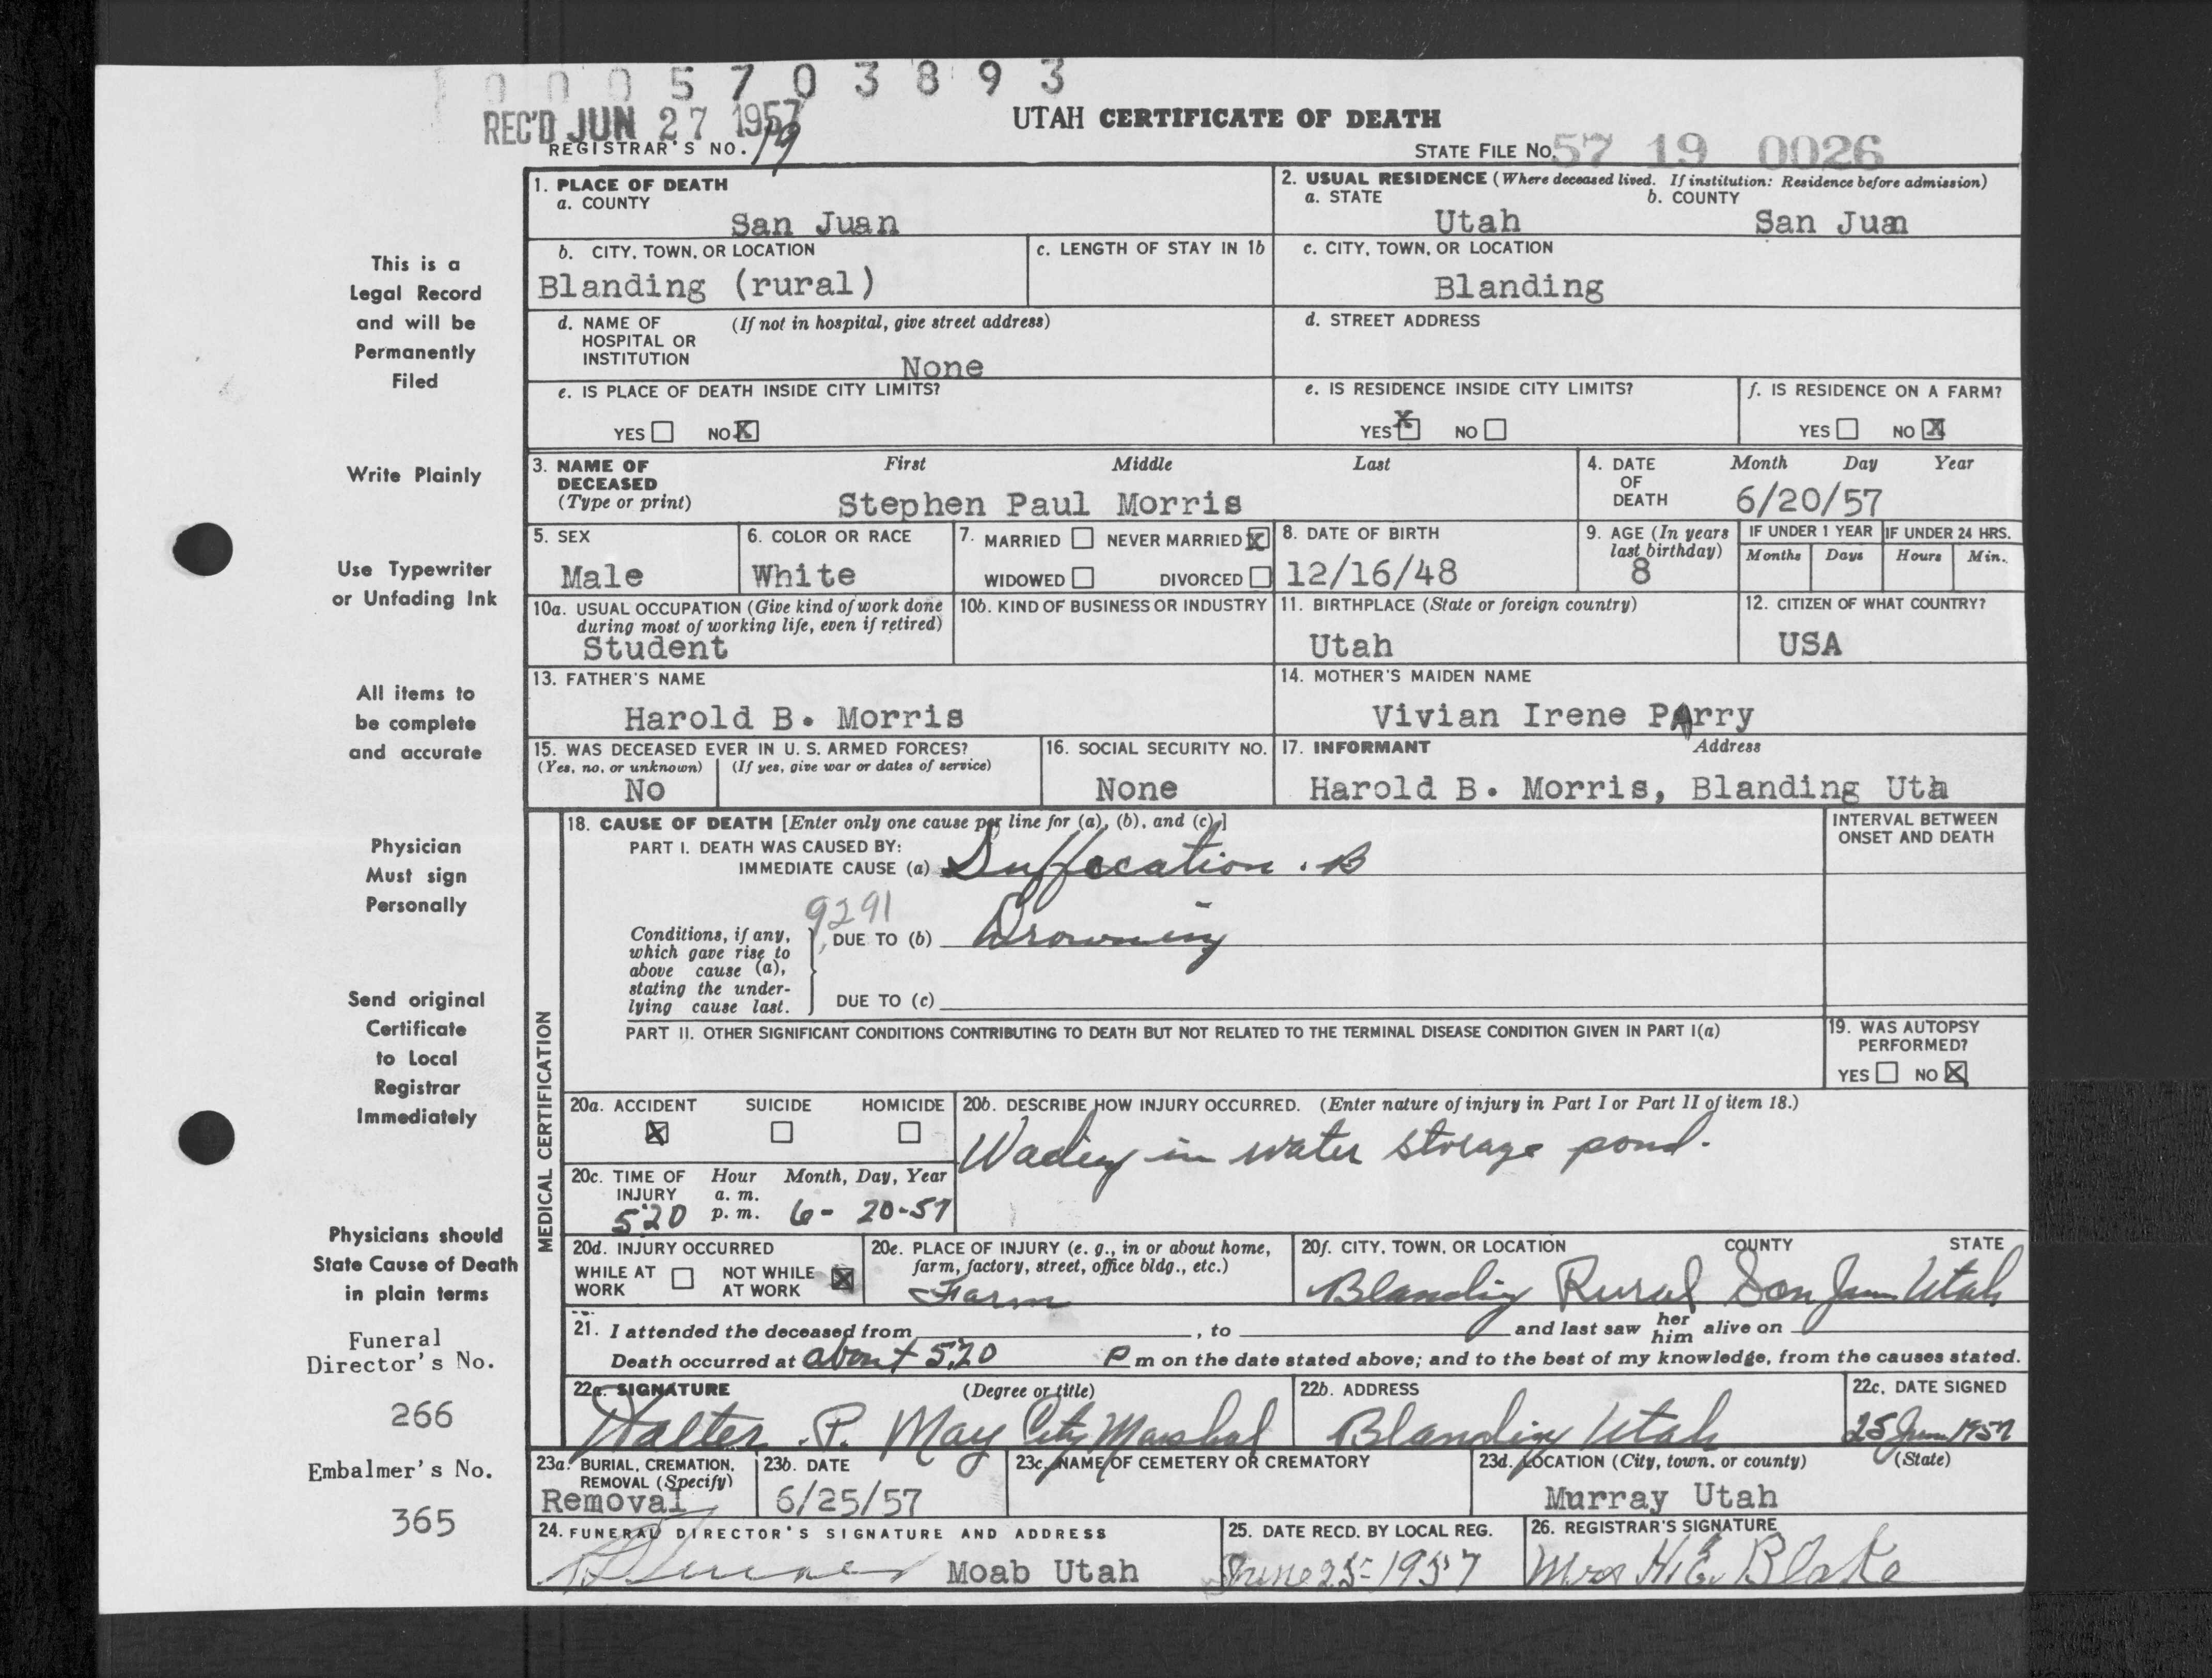 0 0 0 5 7 0 3 8 9 3
REC'D JUN 27 1957
UTAH CERTIFICATE OF DEATH
REGISTRAR'S NO. 19
STATE FILE NO. 57 19 0026
This is a
Legal Record
and will be
Permanently
Filed
Write Plainly
Use Typewriter
or Unfading Ink
All items to
be complete
and accurate
Physician
Must sign
Personally
Send original
Certificate
to Local
Registrar
Immediately
Physicians should
State Cause of Death
in plain terms
Funeral
Director's No.
266
Embalmer's No.
365
1. PLACE OF DEATH
a. COUNTY
San Juan
2. USUAL RESIDENCE (Where deceased lived. If institution: Residence before admission)
a. STATE b. COUNTY
Utah San Juan
b. CITY, TOWN, OR LOCATION
Blanding (rural)
c. LENGTH OF STAY IN 1b
c. CITY, TOWN, OR LOCATION
Blanding
d. NAME OF (If not in hospital, give street address)
HOSPITAL OR
INSTITUTION
None
d. STREET ADDRESS
e. IS PLACE OF DEATH INSIDE CITY LIMITS?
YES NO X
e. IS RESIDENCE INSIDE CITY LIMITS?
YES X NO
f. IS RESIDENCE ON A FARM?
YES NO X
3. NAME OF First Middle Last
DECEASED
(Type or print) Stephen Paul Morris
4. DATE Month Day Year
OF
DEATH 6/20/57
5. SEX
Male
6. COLOR OR RACE
White
7. MARRIED NEVER MARRIED X
WIDOWED DIVORCED
8. DATE OF BIRTH
12/16/48
9. AGE (In years
last birthday)
8
IF UNDER 1 YEAR IF UNDER 24 HRS.
Months Days Hours Min.
10a. USUAL OCCUPATION (Give kind of work done
during most of working life, even if retired)
Student
10b. KIND OF BUSINESS OR INDUSTRY
11. BIRTHPLACE (State or foreign country)
Utah
12. CITIZEN OF WHAT COUNTRY?
USA
13. FATHER'S NAME
Harold B. Morris
14. MOTHER'S MAIDEN NAME
Vivian Irene PArry
15. WAS DECEASED EVER IN U. S. ARMED FORCES?
(Yes, no, or unknown) (If yes, give war or dates of service)
No
16. SOCIAL SECURITY NO.
None
17. INFORMANT Address
Harold B. Morris, Blanding Utah
MEDICAL CERTIFICATION
18. CAUSE OF DEATH [Enter only one cause per line for (a), (b), and (c).]
PART I. DEATH WAS CAUSED BY:
IMMEDIATE CAUSE (a) Suffocation . B
INTERVAL BETWEEN
ONSET AND DEATH
9291
Conditions, if any,
which gave rise to
above cause (a),
stating the under-
lying cause last.
DUE TO (b) Drowning
DUE TO (c)
PART II. OTHER SIGNIFICANT CONDITIONS CONTRIBUTING TO DEATH BUT NOT RELATED TO THE TERMINAL DISEASE CONDITION GIVEN IN PART I(a)
19. WAS AUTOPSY
PERFORMED?
YES NO X
20a. ACCIDENT SUICIDE HOMICIDE
X
20b. DESCRIBE HOW INJURY OCCURRED. (Enter nature of injury in Part I or Part II of item 18.)
Wading in water storage pond.
20c. TIME OF Hour Month, Day, Year
INJURY a. m.
5:20 p. m. 6- 20-57
20d. INJURY OCCURRED
WHILE AT WORK NOT WHILE AT WORK X
20e. PLACE OF INJURY (e. g., in or about home,
farm, factory, street, office bldg., etc.)
Farm
20f. CITY, TOWN, OR LOCATION COUNTY STATE
Blanding Rural San Juan Utah
21. I attended the deceased from , to and last saw her him alive on
Death occurred at about 5:20 P m on the date stated above; and to the best of my knowledge, from the causes stated.
22a. SIGNATURE (Degree or title)
Walter P. May City Marshal
22b. ADDRESS
Blanding Utah
22c. DATE SIGNED
25 June 1957
23a. BURIAL, CREMATION,
REMOVAL (Specify)
Removal
23b. DATE
6/25/57
23c. NAME OF CEMETERY OR CREMATORY
23d. LOCATION (City, town, or county) (State)
Murray Utah
24. FUNERAL DIRECTOR'S SIGNATURE AND ADDRESS
Moab Utah
25. DATE RECD. BY LOCAL REG.
June 25-1957
26. REGISTRAR'S SIGNATURE
Mrs H.E. Blake